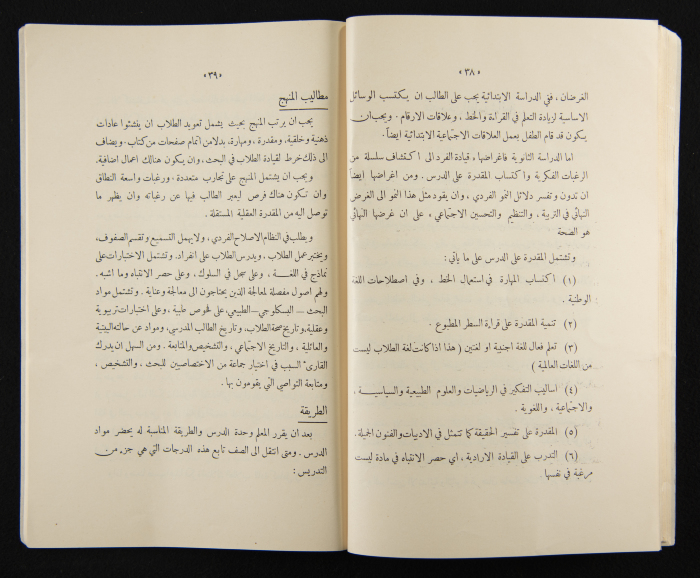 «٣٨»
الغرضان ، ففي الدراسة الابتدائية يجب على الطالب ان يكتسب الوسائل
الاساسية لزيادة التعلم في القراءة والخط ، وعلاقات الارقام . ويجب ان
يكون قد قام الطفل بعمل العلاقات الاجتماعية الابتدائية ايضاً .
اما الدراسة الثانوية فاغراضها ، قيادة الفرد الى اكتشاف سلسلة من
الرغبات الفكرية واكتساب المقدرة على الدرس . ومن اغراضها ايضاً
ان تدون وتفسر دلائل النمو الفردي ، وان يقود مثل هذا النمو الى الغرض
النهائي في التربية ، والتنظيم والتحسين الاجتماعي ، على ان غرضها النهائي
هو الصحة
وتشتمل المقدرة على الدرس على ما يأتي :
(١) اكتساب المهارة في استعمال الخط ، وفي اصطلاحات اللغة
الوطنية .
(٢) تنمية المقدرة على قراءة السطر المطبوع .
(٣) تعلم فعال للغة اجنبية او لغتين ( هذا اذا كانت لغة الطلاب ليست
من اللغات العالمية )
(٤) اساليب التفكير في الرياضيات والعلوم الطبيعية والسياسيـة ،
والاجتماعية ، واللغوية .
(٥) المقدرة على تفسير الحقيقة كما تتمثل في الادبيات والفنون الجميلة .
(٦) التدرب على القيادة الارادية ، اي حصر الانتباه في مادة ليست
مرغبة في نفسها
«٣٩»
مطاليب المنهج
يجب ان يرتب المنهج بحيث يشمل تعويد الطلاب ان ينشئوا عادات
ذهنية وخلقية ، ومقدرة ، ومهارة ، بدلا من اتمام صفحات من كتاب . ويضاف
الى ذلك خرط لقيادة الطلاب في البحث ، وان يكون هنالك اعمال اضافية .
ويجب ان يشتمل المنهج على تجارب متعددة ، ورغبات واسعة النطاق
وان تكون هناك فرص ليعبر الطالب فيها عن رغباته وان يظهر ما
توصل اليه من المقدرة العقلية المستقلة .
ويطلب في النظام الاصلاح الفردي ، ولا يهمل التسميع وتقسم الصفوف ،
ويختبر عمل الطلاب ، ويدرس الطلاب على انفراد . وتشتمل الاختبارات على
نماذج في اللغـــة ، وعلى سجل في السلوك ، وعلى حصر الانتباه وما اشبه .
ولهم اصول مفصلة لمعالجة الذين يحتاجون الى معالجة وعناية . وتشتمل مواد
البحث — البسكلوجي — الطبيعي ، على فحوص طبية ، وعلى اختبارات تربوية
وعقلية ، وتاريخ صحة الطلاب ، وتاريخ الطالب المدرسي ، ومواد عن حالته البيتية
والعائلية ، والتاريخ الاجتماعي ، والتشخيص والمتابعة . ومن السهل ان يدرك
القارىء السبب في اختيار جماعة من الاختصاصيين للبحث ، والتشخيص ،
ومتابعة النواصي التي يقومون بها .
الطريقة
بعد ان يقرر المعلم وحدة الدرس والطريقة المناسبة له يحضر مواد
الدرس . ومتى انتقل الى الصف تابع هذه الدرجات التي هي جزء من
التدريس :